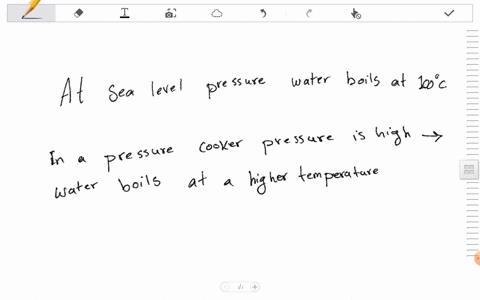 At sea level pressure water boils at 100°C
In a pressure cooker pressure is high →
water boils at a higher temperature